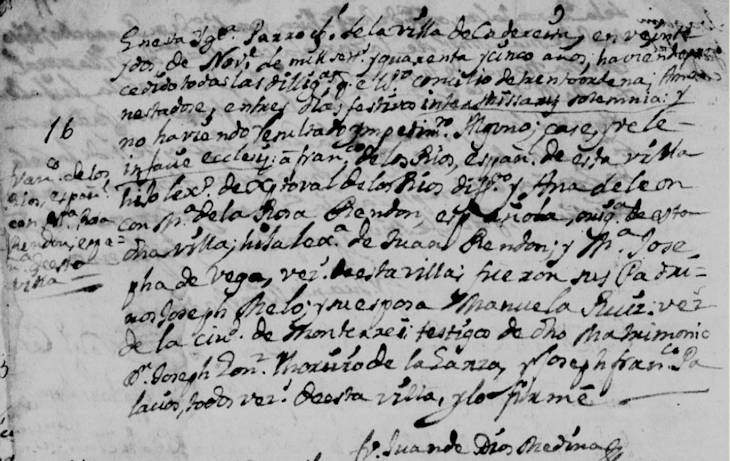 En eva Ygª. Parrochˡ. de la villa de Cadereita, en veinte
y dos de Novᵉ. de mill setˢ. y quarenta y cinco años, haviendo pre
cedido todas las diligˢ. q. e Sto. concilio de trento ordena; Amo
nestadose, en tres dias festivos inter missarum solemnia; y
no haviendo resultado ympedimᵗᵒ. alguno; case, y vele
in facie ecclesiæ; a Franᶜᵒ. de los Rios, españˡ. de esta villa
hijo lexᵒ. de Xptoval de los Rios difᵗᵒ. y Ana de leon
con Mª. de la Rosa Rendon, española, origª. de esta
dha villa; hija lexª. de Juan Rendon; y Mª. Jose
pha de vega, verˢ. de esta villa; fueron sus Padri-
nos Joseph Melo; y su esposa Manuela Ruiz: verˢ
de la ciuᵈ. de Monterrei; testigos de dho Matrimonio
Dⁿ. Joseph de la Garza, y Joseph franᶜᵒ. Pa
lacios, todos verˢ. de esta villa, y lo firmé
16
Franᶜᵒ. de los
Rios, españˡ.
con Mª. Rosa
Rendon, espa-
ñª. de esta
villa
Fr. Juan de Dios Medina